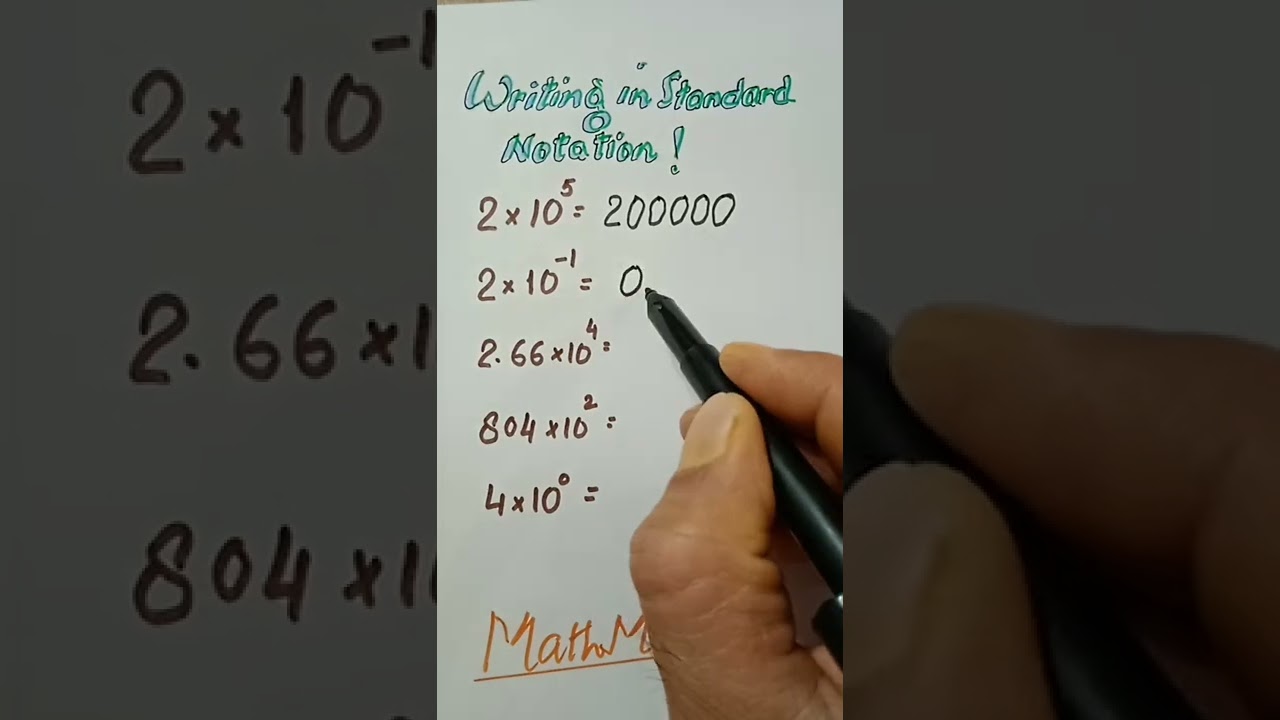 Writing in Standard
Notation!
2 × 10⁵ = 200000
2 × 10⁻¹ = 0.
2.66 × 10⁴ =
804 × 10² =
4 × 10⁰ =
Math